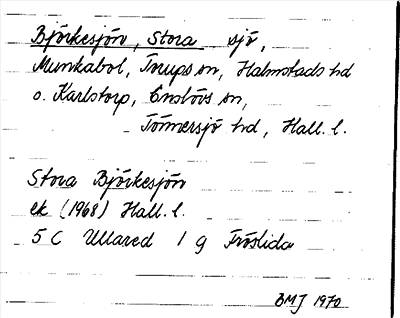 Björkesjön, Stora sjö,
Munkabol, Snups sn, Halmstads hd
o. Karlstorp, Enslövs sn,
Tönnersjö hd, Hall. l.
Stora Björkesjön
ek (1968) Hall. l.
5 C Ullared 1 g Fröslida
BMJ 1970